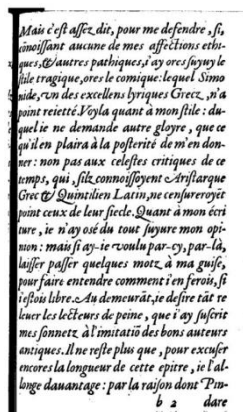 Mais c'eſt aſſez dit, pour me defendre, ſi,
cõnoiſſant aucune de mes affections ethi-
ques, & autres pathiques, i'ay ores ſuyuy le
ſtile tragique, ores le comique: lequel Simo
nide, vn des excellens lyriques Grecz, n'a
point reietté. Voyla quant à mon ſtile: du-
quel ie ne demande autre gloyre, que ce
qu'il en plaira à la poſterité de m'en don-
ner: non pas aux celeſtes critiques de ce
temps, qui, ſilz connoiſſoyent Ariſtarque
Grec & Quintilien Latin, ne cenſureroyēt
point ceux de leur ſiecle. Quant à mon écri
ture, ie n'ay oſé du tout ſuyure mon opi-
nion: mais ſi ay-ie voulu par-cy, par-là,
laiſſer paſſer quelques motz à ma guiſe,
pour faire entendre comment i'en ferois, ſi
i'eſtois libre. Au demeurãt, ie deſire tãt re
leuer les lecteurs de peine, que i'ay ſuſcrit
mes ſonnetz à l'imitatiõ des bons auteurs
antiques. Il ne reſte plus que, pour excuſer
encores la longueur de cette epitre, ie l'al-
longe dauantage: par la raiſon dont Pin-
b 2 dare